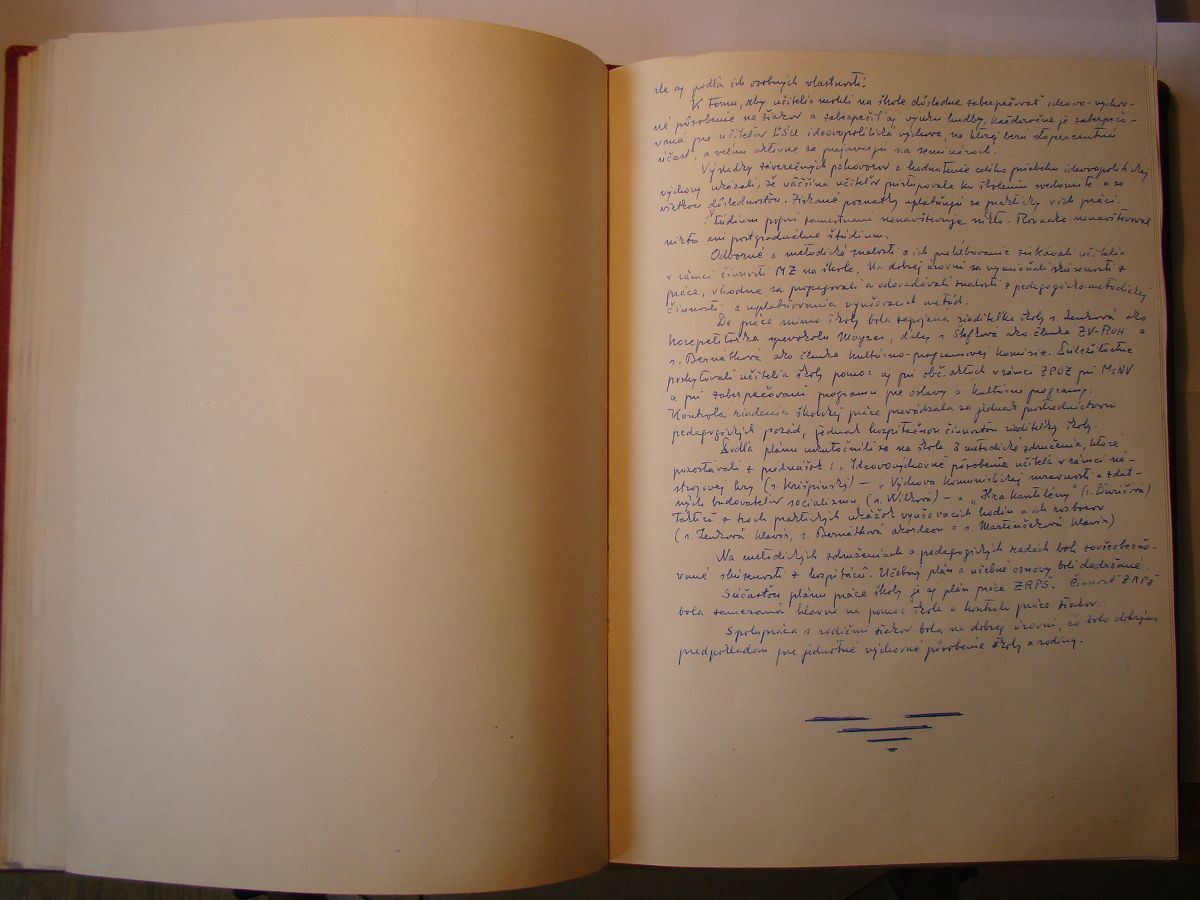 ale aj podľa ich osobných vlastností.
K tomu, aby učitelia mohli na škole dôsledne zabezpečovať ideovo-výchov-
né pôsobenie na žiakov a zabezpečiť aj výuku hudby, každoročne je zabezpečo-
vaná pre učiteľov ĽŠU ideovopolitická výchova, na ktorej berú stopercentnú
účasť, a veľmi aktívne sa prejavujú na seminároch.
Výsledky záverečných pohovorov a hodnotenie celého priebehu ideovopolitickej
výchovy ukázali, že väčšina učiteľov pristupovala ku školeniu svedomite a so
všetkou dôslednosťou. Získané poznatky uplatňujú sa prakticky v ich práci.
Štúdium popri zamestnaní nenavštevuje nikto. Rovnako nenavštevoval
nikto ani postgraduálne štúdium.
Odborné a metodické znalosti a ich prehlbovanie získávali učitelia
v rámci činnosti MZ na škole. Na dobrej úrovni sa vymieňali skúsenosti z
práce, vhodne sa propagovali a odovzdávali znalosti z pedagogicko-metodickej
činnosti a uplatňovania vyučovacích metód.
Do práce mimo školy bola zapojená riaditeľka školy s. Jenková ako
korepetítorka spevokolu Moyzes, ďalej s. Štefková ako členka ZV-ROH a
s. Bernátková ako členka kultúrno-programovej komisie. Príležitostne
poskytovali učitelia školy pomoc aj pri obč. aktoch v rámci ZPOZ pri MsNV
a pri zabezpečovaní programu pre oslavy a kultúrne programy.
Kontrola riadenia školskej práce prevádzala sa jednak prostredníctvom
pedagogických porád, jednak hospitačnou činnosťou riaditeľky školy.
Podľa plánu uskutočnili sa na škole 3 metodické združenia, ktoré
pozostávali z prednášok: "Ideovovýchovné pôsobenie učiteľa v rámci ná-
strojovej hry (s. Krišpinský) – "Výchova komunistickej mravnosti a zdat-
ných budovateľov socializmu (s. Vlková) – a "Hra kantilény" (s. Ďurišová)
Taktiež z troch praktických ukážok vyučovacích hodín a ich rozborov
(s. Jenková klavír, s. Bernátková akordeon a s. Martinčeková klavír)
Na metodických združeniach a pedagogických radách boli zovšeobecňo-
vané skúsenosti z hospitácií. Učebný plán a učebné osnovy boli dodržané.
Súčasťou plánu práce školy je aj plán práce ZRPŠ. Činnosť ZRPŠ
bola zameraná hlavne na pomoc škole a kontrolu práce žiakov.
Spolupráca s rodičmi žiakov bola na dobrej úrovni, čo bolo dobrým
predpokladom pre jednotné výchovné pôsobenie školy a rodiny.